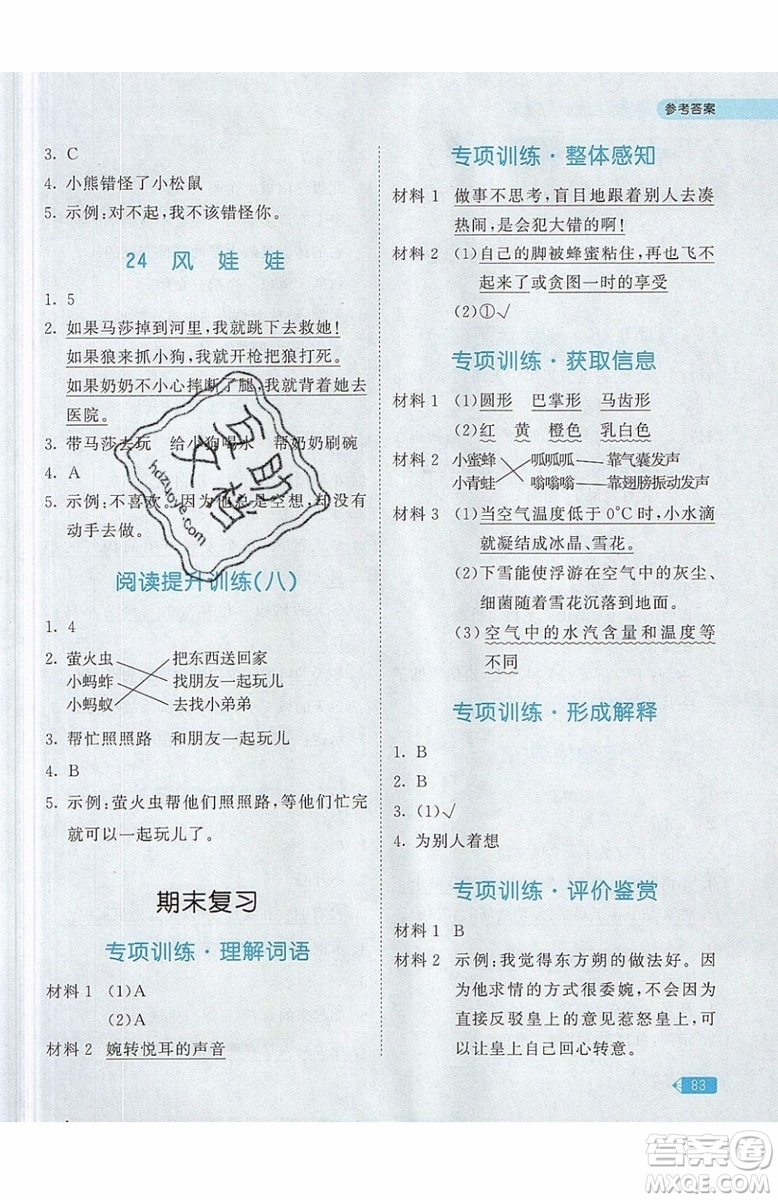 参考答案
3. C
4. 小熊错怪了小松鼠
5. 示例:对不起,我不该错怪你。
24 风 娃 娃
1. 5
2. 如果马莎掉到河里,我就跳下去救她!
如果狼来抓小狗,我就开枪把狼打死。
如果奶奶不小心摔断了腿,我就背着她去
医院。
3. 带马莎去玩 给小狗喝水 帮奶奶刷碗
4. A
5. 示例:不喜欢。因为他总是空想,却没有
动手去做。
阅读提升训练(八)
1. 4
2. 萤火虫 把东西送回家
小蚂蚱 找朋友一起玩儿
小蚂蚁 去找小弟弟
3. 帮忙照照路 和朋友一起玩儿
4. B
5. 示例:萤火虫帮他们照照路,等他们忙完
就可以一起玩儿了。
期末复习
专项训练·理解词语
材料1 (1)A
(2)A
材料2 婉转悦耳的声音
专项训练·整体感知
材料1 做事不思考,盲目地跟着别人去凑
热闹,是会犯大错的啊!
材料2 (1)自己的脚被蜂蜜粘住,再也飞不
起来了或贪图一时的享受
(2)①√
专项训练·获取信息
材料1 (1)圆形 巴掌形 马齿形
(2)红 黄 橙色 乳白色
材料2 小蜜蜂 呱呱呱 靠气囊发声
小青蛙 嗡嗡嗡 靠翅膀振动发声
材料3 (1)当空气温度低于0℃时,小水滴
就凝结成冰晶、雪花。
(2)下雪能使浮游在空气中的灰尘、
细菌随着雪花沉落到地面。
(3)空气中的水汽含量和温度等
不同
专项训练·形成解释
1. B
2. B
3. (1)√
4. 为别人着想
专项训练·评价鉴赏
材料1 B
材料2 示例:我觉得东方朔的做法好。因
为他求情的方式很委婉,不会因为
直接反驳皇上的意见惹怒皇上,可
以让皇上自己回心转意。
83
互助
文档
hdzuoye.com
答案圈
MXQE.COM